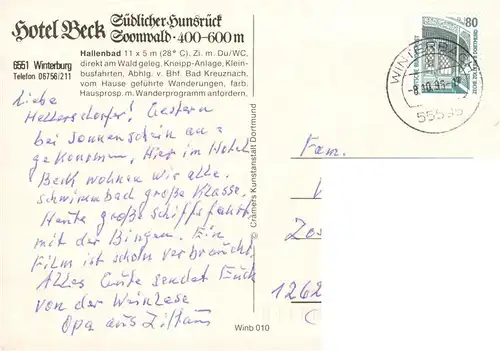 Hotel Beck
Südlicher Hunsrück
Soonwald · 400-600 m
6551 Winterburg
Telefon 06756/211
Hallenbad 11 x 5 m (28° C). Zi. m. Du/WC,
direkt am Wald geleg. Kneipp-Anlage, Klein-
busfahrten, Abhlg. v. Bhf. Bad Kreuznach,
vom Hause geführte Wanderungen, farb.
Hausprosp. m. Wanderprogramm anfordern.
Liebe
Hellersdorfer! Gestern
bei Sonnenschein an=
gekommen, Hier im Hotel
Beck wohnen wir alle.
Schwimmbad große Klasse.
Heute große Schiffsfahrt
mit der Bingen. Ein
Film ist schon verbraucht.
Alles Gute sendet Euch
von der Weinlese
Opa aus Zittau
Winb 010
© Cramers Kunstanstalt Dortmund
80
DEUTSCHE BUNDESPOST
ZECHE ZOLLERN II DORTMUND
Fam.
1262